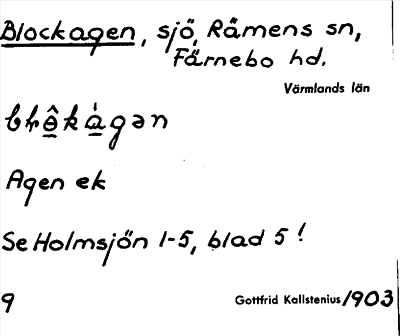 Blockagen, sjö, Råmens sn,
Färnebo hd.
Värmlands län
Agen ek
Se Holmsjön 1-5, blad 5!
9
Gottfrid Kallstenius 1903